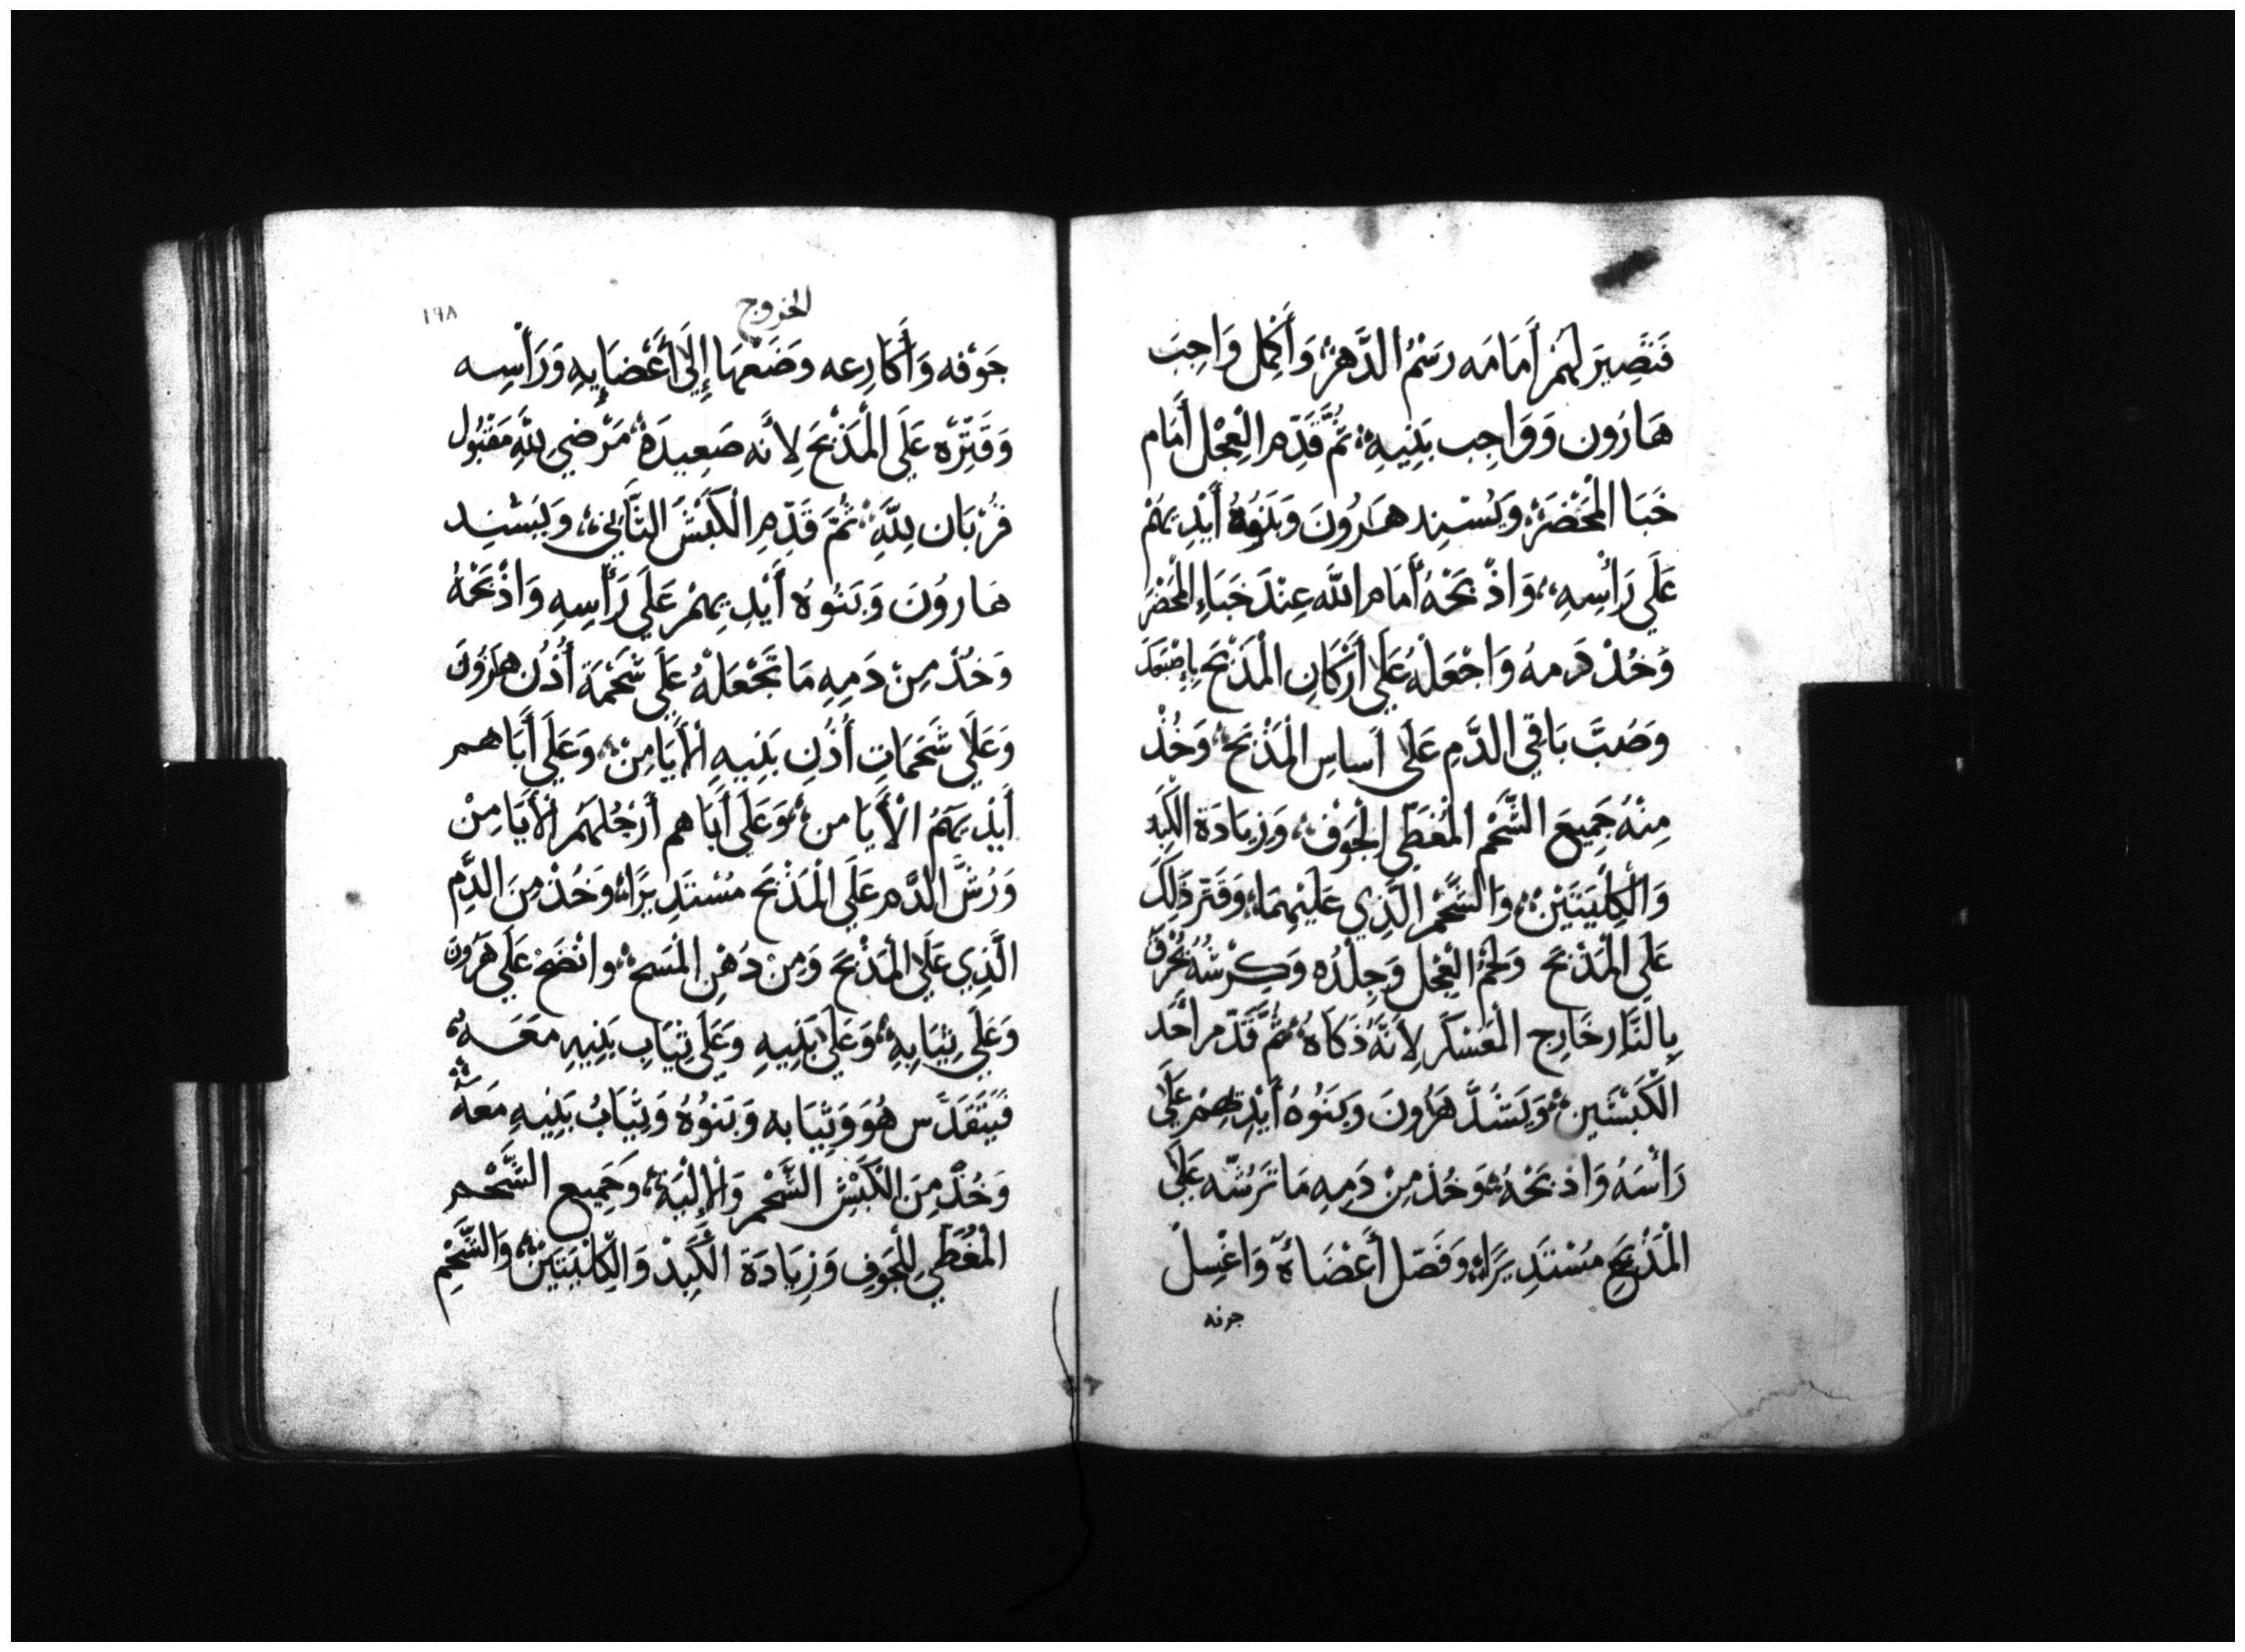 فَتَصِيرَ لَهُمْ أَمَامَه رَسْمُ الدَّهْرِ وَأَكْمِل وَاجِبَ
هَارَون وَوَاجِب بَنِيهِ ثُمَّ قَدِّمِ الْعِجْل أَمَام
خَبَا الْمَحْضَرِ وَيُسْنِد هَرُونَ وَبَنُوهُ أَيْدِيَهُمْ
عَلَي رَأْسِهِ وَاذْبَحْهُ أَمَام اللَّه عِنْدَ خَبَاءِ الْمَحْضَر
وَخُذْ دَمهُ وَاجْعَلْهُ عَلَي أَرْكَانِ الْمَذْبَحِ بِإِصْبَعَكَ
وَصُبَّ بَاقِي الدَّمِ عَلَى أَساسِ الْمَذْبَحِ وَخُذْ
مِنْهُ جَمِيعَ الشَّحْمِ الْمُغَطِّي الْجَوْفِ وَزِيَادَة الْكَبِد
وَالْكِلْيَتَيْنِ وَالشَّحْمِ الَّذِي عَلَيْهِمَا وَقَتِّر ذَلِكَ
عَلَي الْمَذْبَحَ وَلَحْمُ الْعِجْل وَجِلْدُه وَكِرْشُهُ تُحْرَقُ
بِالنَّار خَارِج الْعَسْكَر لِأَنَّهُ ذَكَاةُ ثُمَّ قَدِّم احَد
الْكَبْشَينِ وَيَسْنُدَ هَرُونَ وَبَنُوهُ أَيْدِيهُمْ عَلَي
رَأْسَهُ وَاذبَحْهُ وَخُذ مِنْ دَمِهِ مَا تَرُشّه عَلَي
الْمَذْبَحِ مُسْتَدِيرًا وَفَصّل أَعْضَاهُ وَاغْسِلْ
جوفه
الخروج
١٩٨
جَوْفه وَأَكَارِعه وَضَعْهَا إِلَى أَعْضَايِهِ وَرَأْسِه
وَقَتِّرْه عَلَي الْمَذْبَحَ لِأَنه صَعِيدَة مَرْضِي لِلَّهِ مَقْبُول
قُرْبَان لِلَّهِ ثُمَّ قَدِّمِ الْكَبْشَ الثَّانِي وَيَسْنِد
هَارُونَ وَبَنُوه أَيْدِيهِمْ عَلَي رَأْسِهِ وَاذْبَحْهُ
وَخُذْ مِنْ دَمِهِ مَا تَجْعَلْهُ عَلَى شَحْمَة أُذُن هَارُون
وَعَلَي شَحَمَاتِ أُذُنِ بَنِيهِ الْأَيَامِنْ وَعَلَي أَبَاهم
أَيْدِيَهُمُ الْأَيَامن وَعَلَي أَبَاهم أَرْجُلَهُم الْأَيَامِنْ
وَرُشَّ الدَّم عَلَي الْمَذْبَحَ مُسْتَدِيرًا وَخُذْ مِنَ الدَّمِ
الَّذِي عَلَي الْمَذْبَحَ وَمِنْ دُهْنِ الْمَسْحِ وانْضَحْ عَلَي هَرُونَ
وَعَلَي ثِيَابِهِ وَعَلَي بَنِيهِ وَعَلَي ثِيَابِ بَنِيهِ مَعَهُ
فَيَتَقَدَّس هُوَ وَثِيَابه وَبَنُوُهُ وَثِيَابُ بَنِيهِ مَعَهُ
وَخُذْ مِنَ الْكَبْشِ الشَّحْمِ وَالْإِلْيَة وَجَمِيع الشَّحْم
الْمُغَطِّي لِلْجَوفِ وَزِيَادَة الْكَبِدْ وَالْكِلْيَتَيْنِ وَالشَّحْمِ